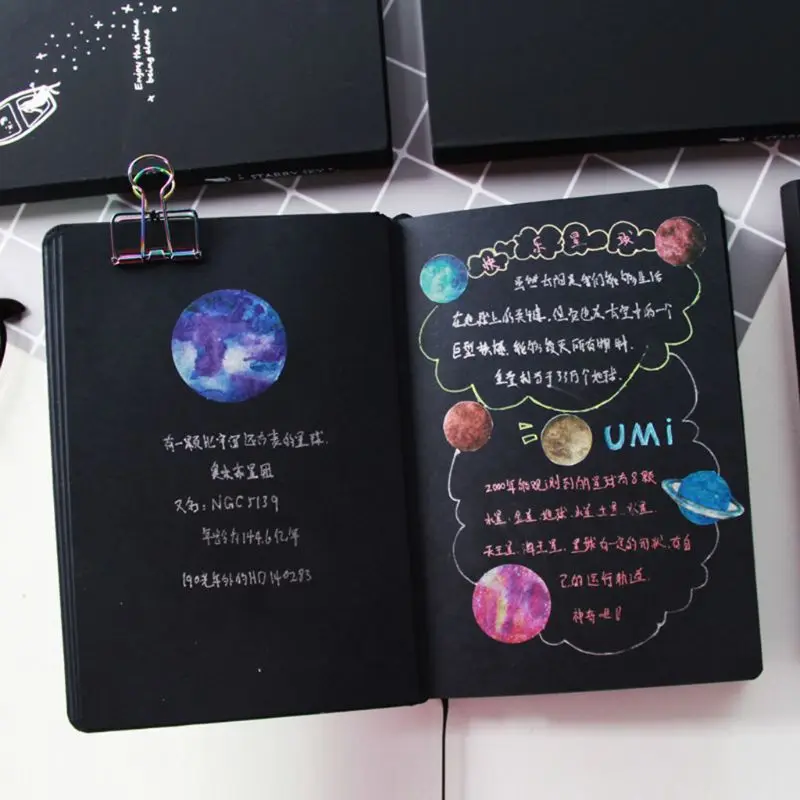 Enjoy the time
being alone
STARRY SKY
有一颗比宇宙还古老的星球
奥米茄星团
又名:NGC5139
年龄为144.6亿年
190光年外的HD140283
快乐星球
虽然太阳是我们能够生活
在地球上的关键,但它也是太空中的一个
巨型
重量相当于33万个地球.
UMi
2000年的观测到的星球有8颗
水星、金星、地球、火星、土星、木星
天王星、海王星,星球有一定的形状,有自
己的运行轨道.
神奇吧!